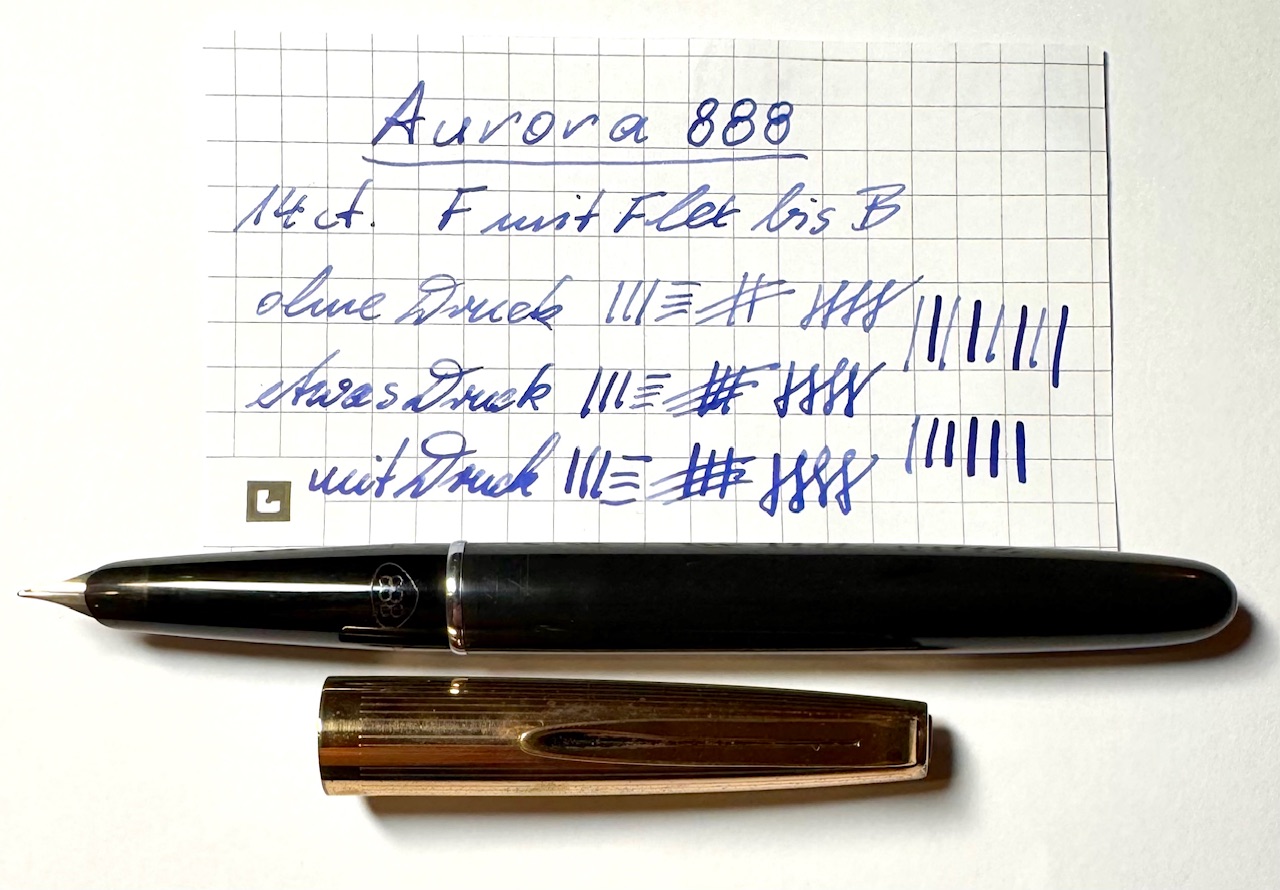 Aurora 888
14 ct. F mit Flex bis B
ohne Druck
etwas Druck
mit Druck
888